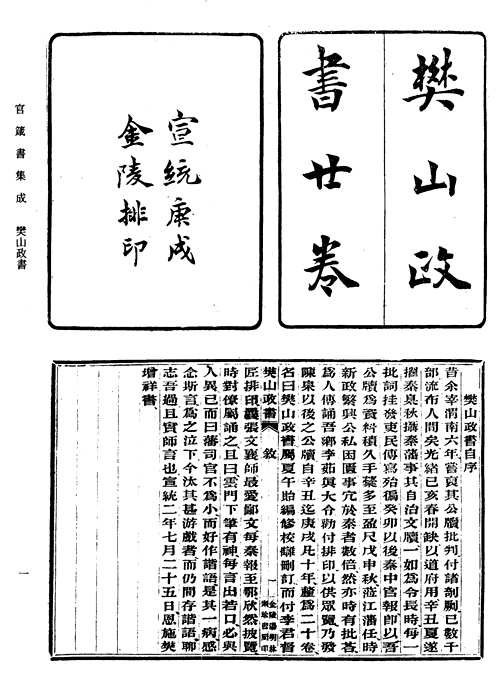 樊山政
書廿卷
宣統庚戌
金陵排印
官箴書集成 樊山政書
樊山政書自序
昔余宰渭南六年嘗取其公牘批判付諸剞劂已數千
部流布人間矣光緒己亥春開缺以道府用辛丑夏遂
擢秦臬秋攝秦藩事其自治文牘一如為令長時每一
批詞挂發吏民傳寫殆徧癸卯以後秦中官報即以吾
公牘為資料積久手藳多至盈尺戊申秋蒞江藩任時
新政繁興公私困匱事冗於秦者數倍然亦時有批荅
為人傳誦吾鄉李茹真大令勸付排印以供眾覽乃發
陳臬以後之公牘自辛丑迄庚戌凡十年釐為二十卷
名曰樊山政書屬夏午詒編修校讎刪訂而付李君督
樊山政書 敘 一 金陵湯明林
聚珍書局印
匠排印曩張文襄師最愛鄙文每秦報至鄂欣然披覽
時對僚屬誦之且曰雲門下筆有神每言出若口必與
人異已而曰藩司官不為小而好作諧語是其一病感
念斯言為之泣下今汰其甚游戲者而仍間存諧語聊
志吾過且實師言也宣統二年七月二十五日恩施樊
增祥書
一